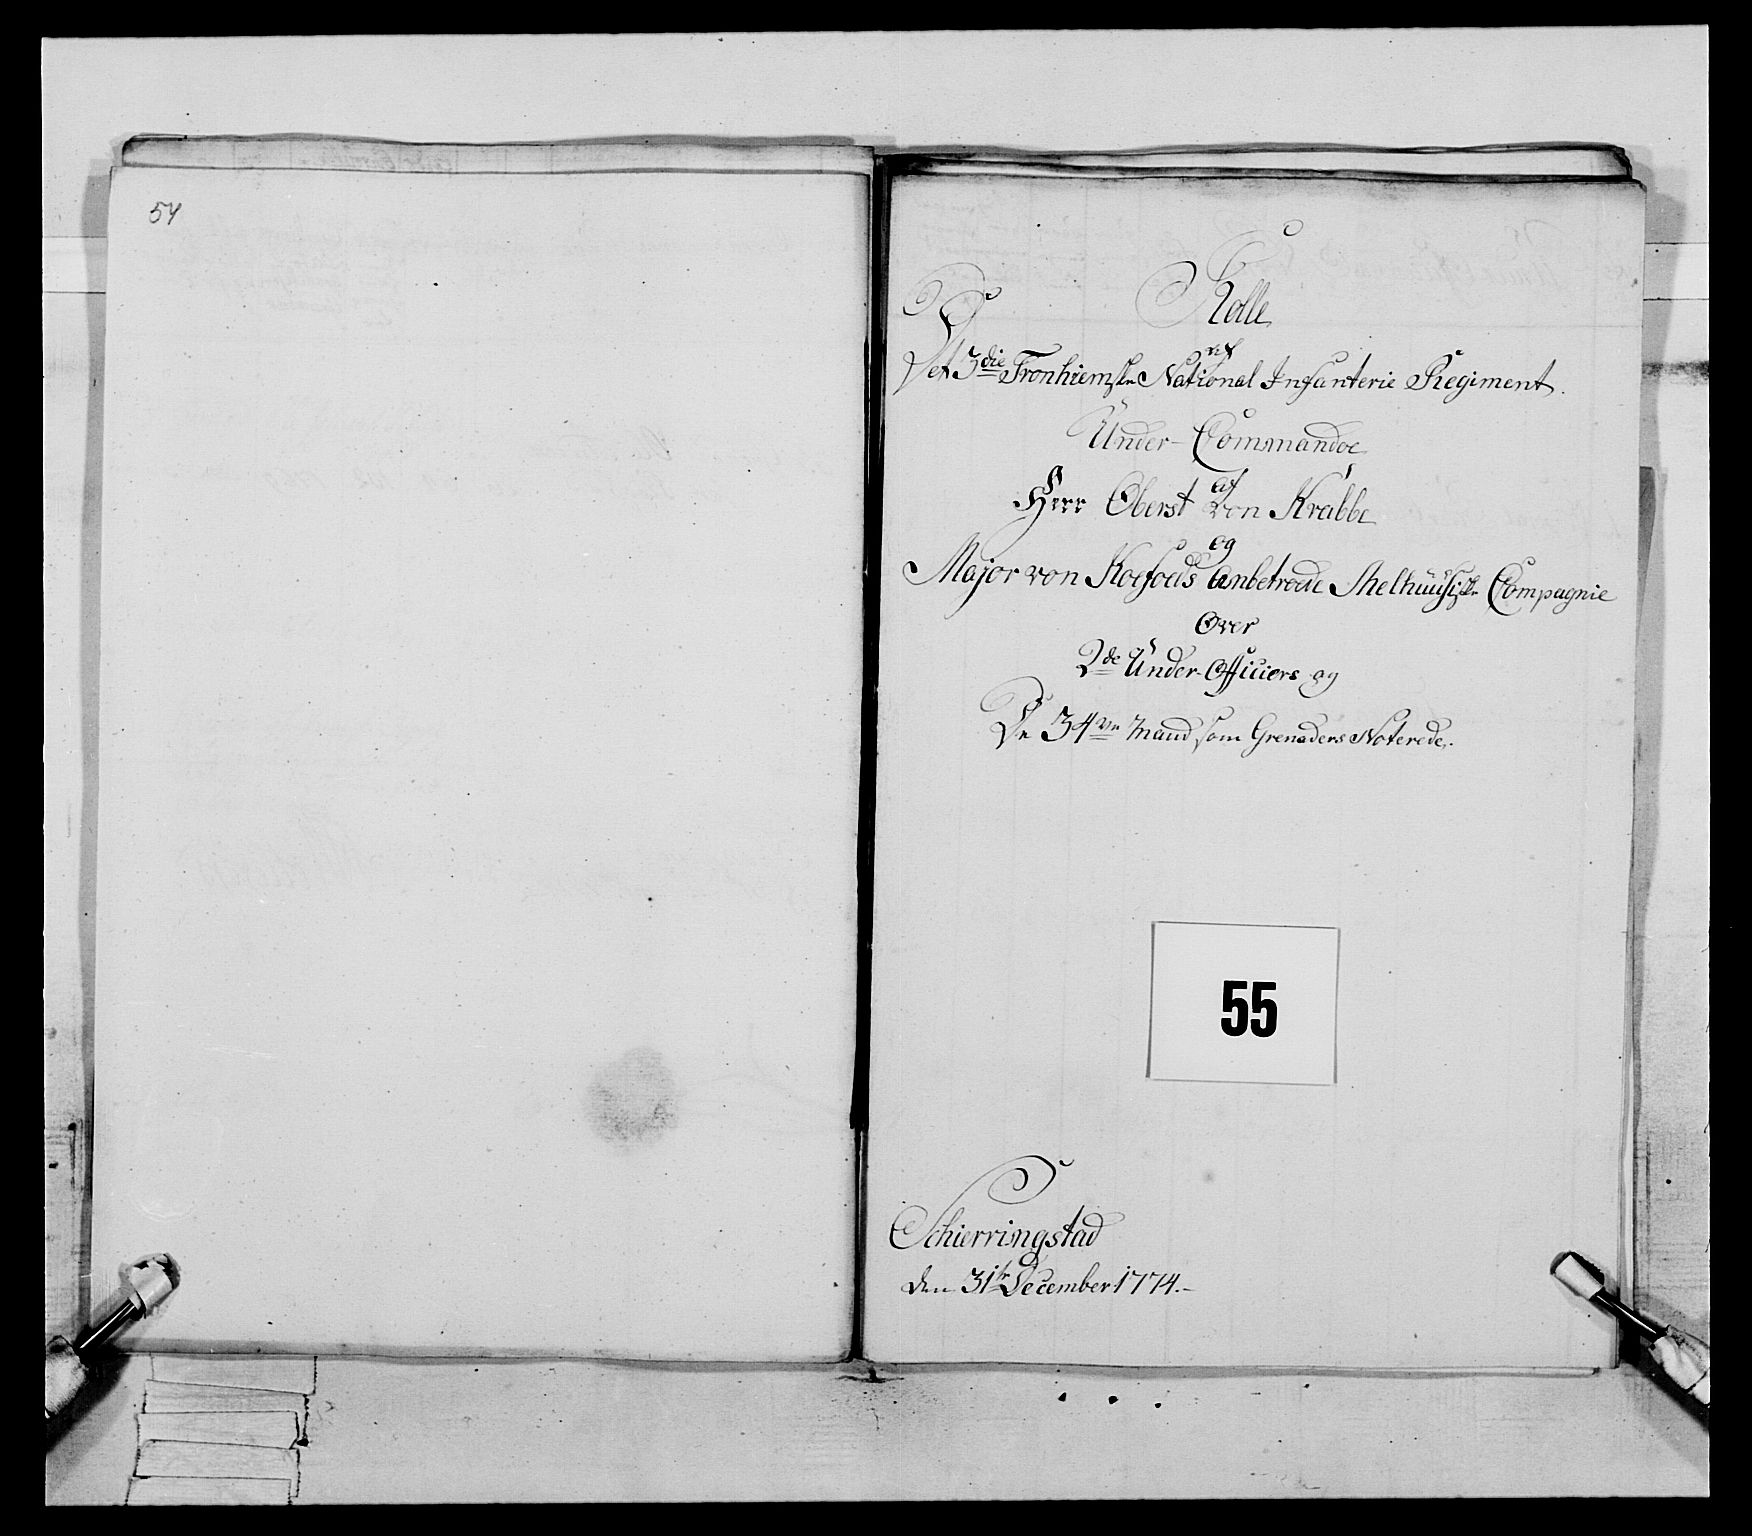 54
Rolle
af
Det 3die Tronhiemske National Infanterie Regiment.
Under-Commandoe
af
Herr Oberst von Krabbe
og
Major von Koefoeds anbetroede Compagnie
Over
2de Under-Officiers og
De 34ve Mand som Grenaders Noterede.
55
Schierringstad
den 31te December 1774.-